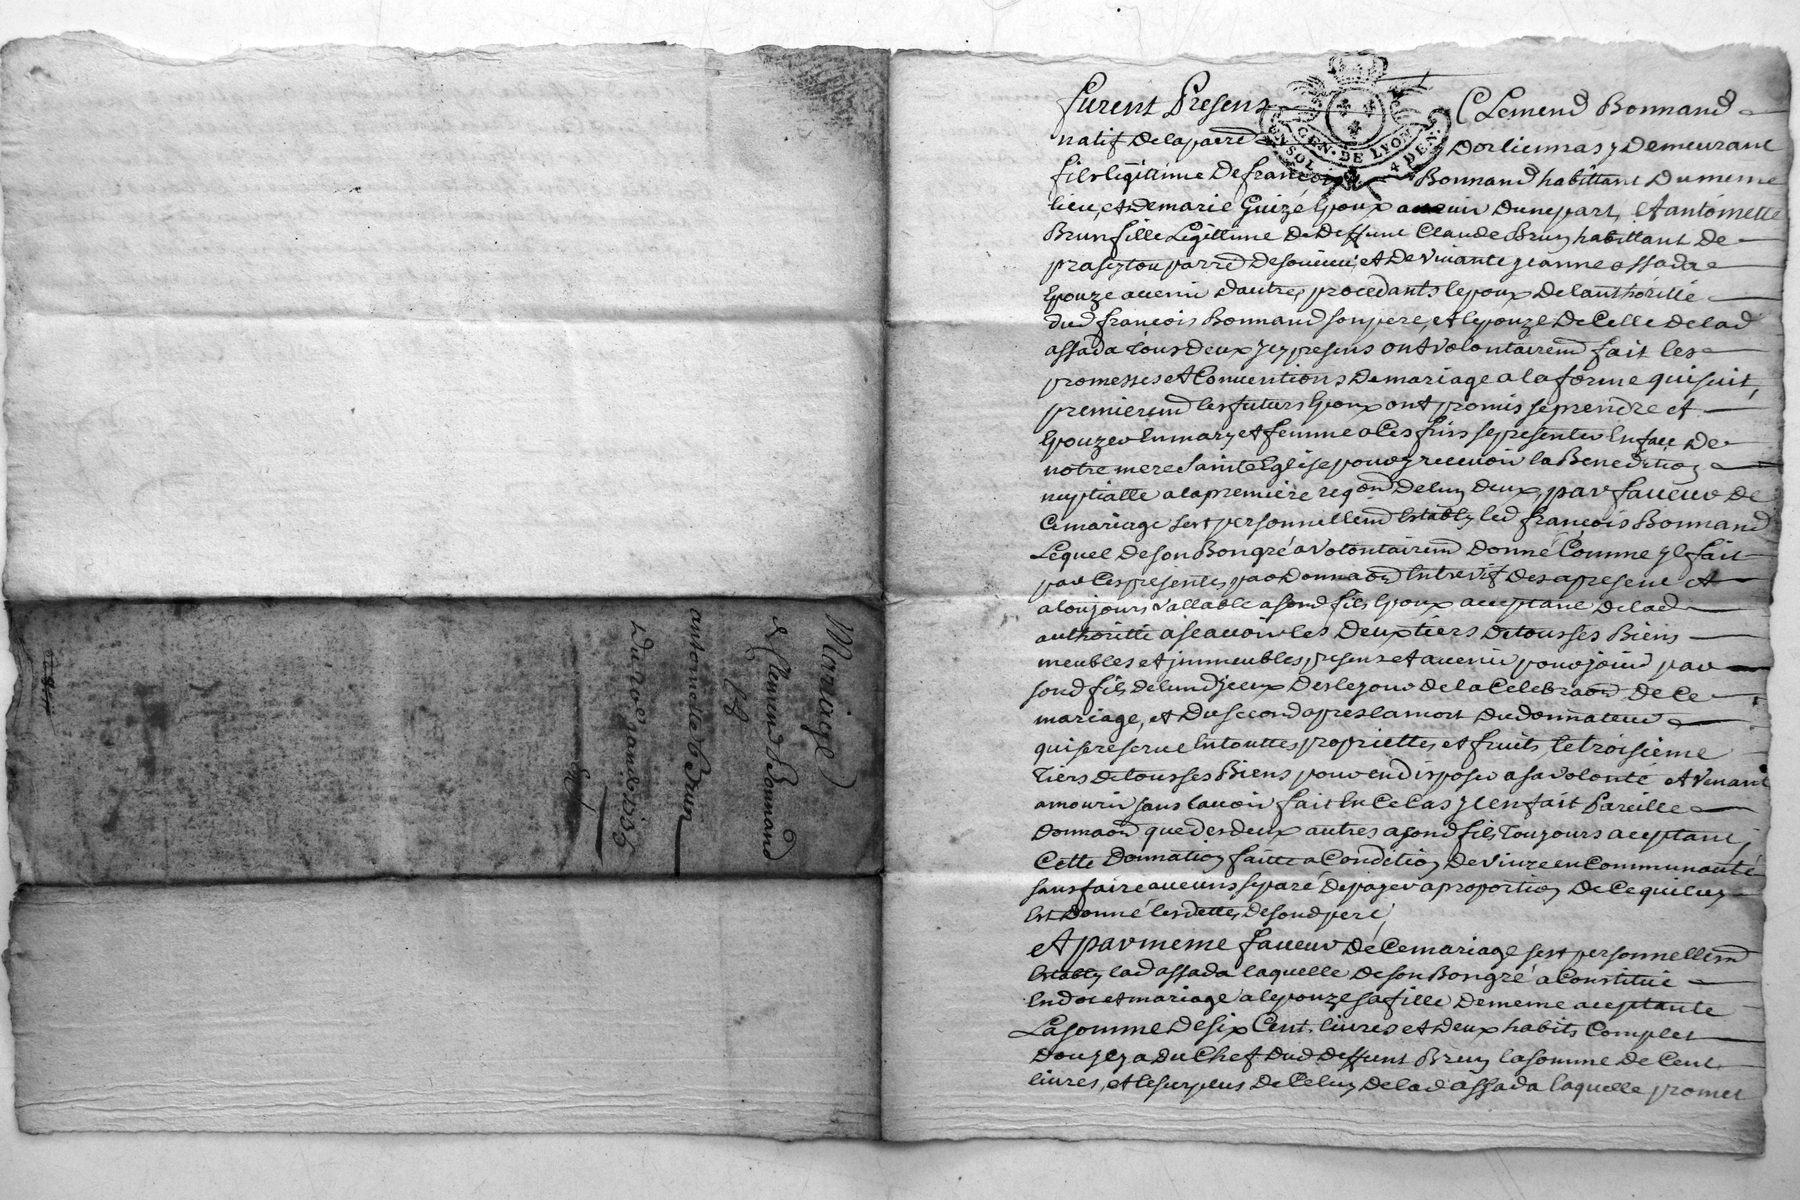 Mariage
de Clemend Bonnand
Et
antoinette Brun
Du 10e janv 1515
furent Presens Clemend Bonnand
GEN. DE LYON
EN SOL. 4 DEN.
natif de la paerr dorliennas y demeurant
fils légitime De françois Bonnand habittant Du meme
lieu, et De marie Guize Epoux a venir Dune part, Et antoinette
Brun fille Legittime De Deffunt Claude Brun habittant De
parrd De soucieu, et De vivante jeanne assada
Epouze avenir dautre, procedants lepoux De lauthorité
dud françois Bonnand son pere, et lepouze De Celle De lad
assada tous Deux jcy presens ont volontairemd fait les
promesses et Conventions De mariage a la forme qui suit,
premieremd les futurs Epoux ont promis se prendre et
Epouzer En mary et femme a Ces fins se presenter En face De
notre mere Sainte Eglise pour y recevoir la Benediction
nuptialle a la premiere reqon De luy Deux, par faveur De
Ce mariage sest personnellemd Estably led françois Bonnand
Lequel De son Bon gré a volontairemd Donné Comme jl fait
par Ces presentes par Donnaon Entrevif Des a present et
a toujours vallable a sond fils Epoux acceptant De lad
authoritté a scavoir les Deux tiers De tous ses Biens
meubles et jmmeubles presens et avenir pour jouir par
sond fils de lund jceux Des le jour de la Celebraon De Ce
mariage, et Du second apres la mort Du donnateur
qui se reserve En touttes propriettes et fruits le troisieme
Tiers de tous ses Biens pour en disposer a sa volonté et venant
a mourir sans lavoir fait En Ce Cas jl en fait Pareille
Donnaon que des deux autres a sond fils Toujours aceptant,
Cette Donnation faitte a Condition De vivre en Communauté
sans faire aucuns separé De payer a proportion De Ce qui luy
Est Donné les dettes de sond pere
et par meme faveur de Ce mariage sest personnellemd
Estably lad assada laquelle De son Bon gré a Constitué
En dot et mariage a lepouze sa fille De meme aceptante
La somme De six Cent livres et deux habits Complet
Dou jl y a du Chef Dud Deffunt Brun la somme De Cent
livres, et le surplus De Celuy De lad assada laquelle promet